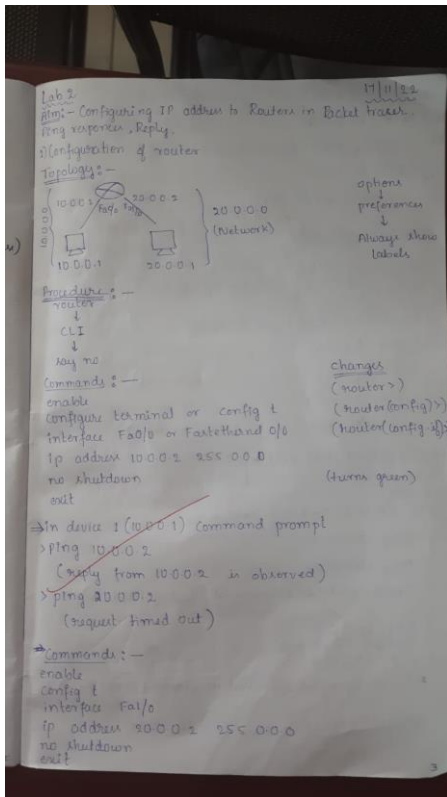 Lab 2
17/11/22
Aim:- Configuring IP address to Routers in Packet tracer.
Ping responses, Reply.
1) Configuration of router
Topology:-
10.0.0.2 20.0.0.2
Fa0/0
10.0.0.0
20.0.0.0
(Network)
10.0.0.1 20.0.0.1
options
↓
preferences
↓
Always show
labels
Procedure:-
router
↓
CLI
↓
say no
Commands:-
enable
configure terminal or config t
interface Fa0/0 or Fastethernet 0/0
ip address 10.0.0.2 255.0.0.0
no shutdown
exit
changes
(router>)
(router(config)>)
(router(config-if)>
(turns green)
⇒in device 1 (10.0.0.1) Command prompt
>Ping 10.0.0.2
(reply from 10.0.0.2 is observed)
> ping 20.0.0.2
(request timed out)
⇒Commands:-
enable
config t
interface Fa1/0
ip address 20.0.0.2 255.0.0.0
no shutdown
exit
3